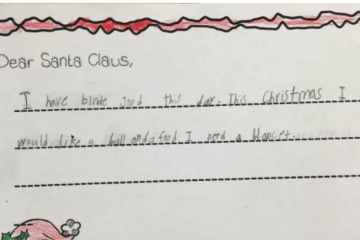 Dear Santa Claus,
I have binde good this day. This Christmas I
would like a ball and a food I need a blancet.